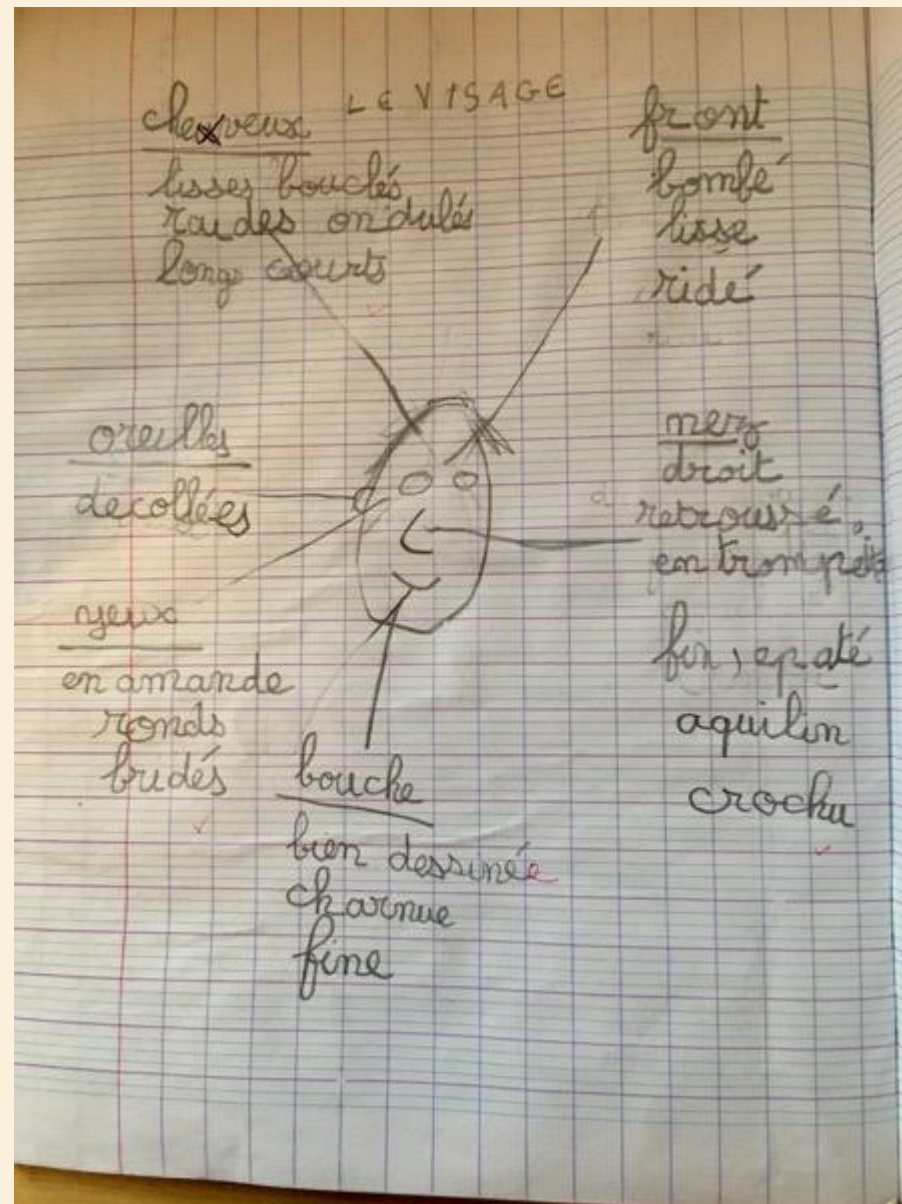 LE VISAGE
cheveux
lisses bouclés
raides ondulés
longs courts
front
bombé
lisse
ridé
oreilles
décollées
nez
droit
retroussé,
en trompette
fin, epaté
aquilin
crochu
yeux
en amande
ronds
bridés
bouche
bien dessinée
charnue
fine